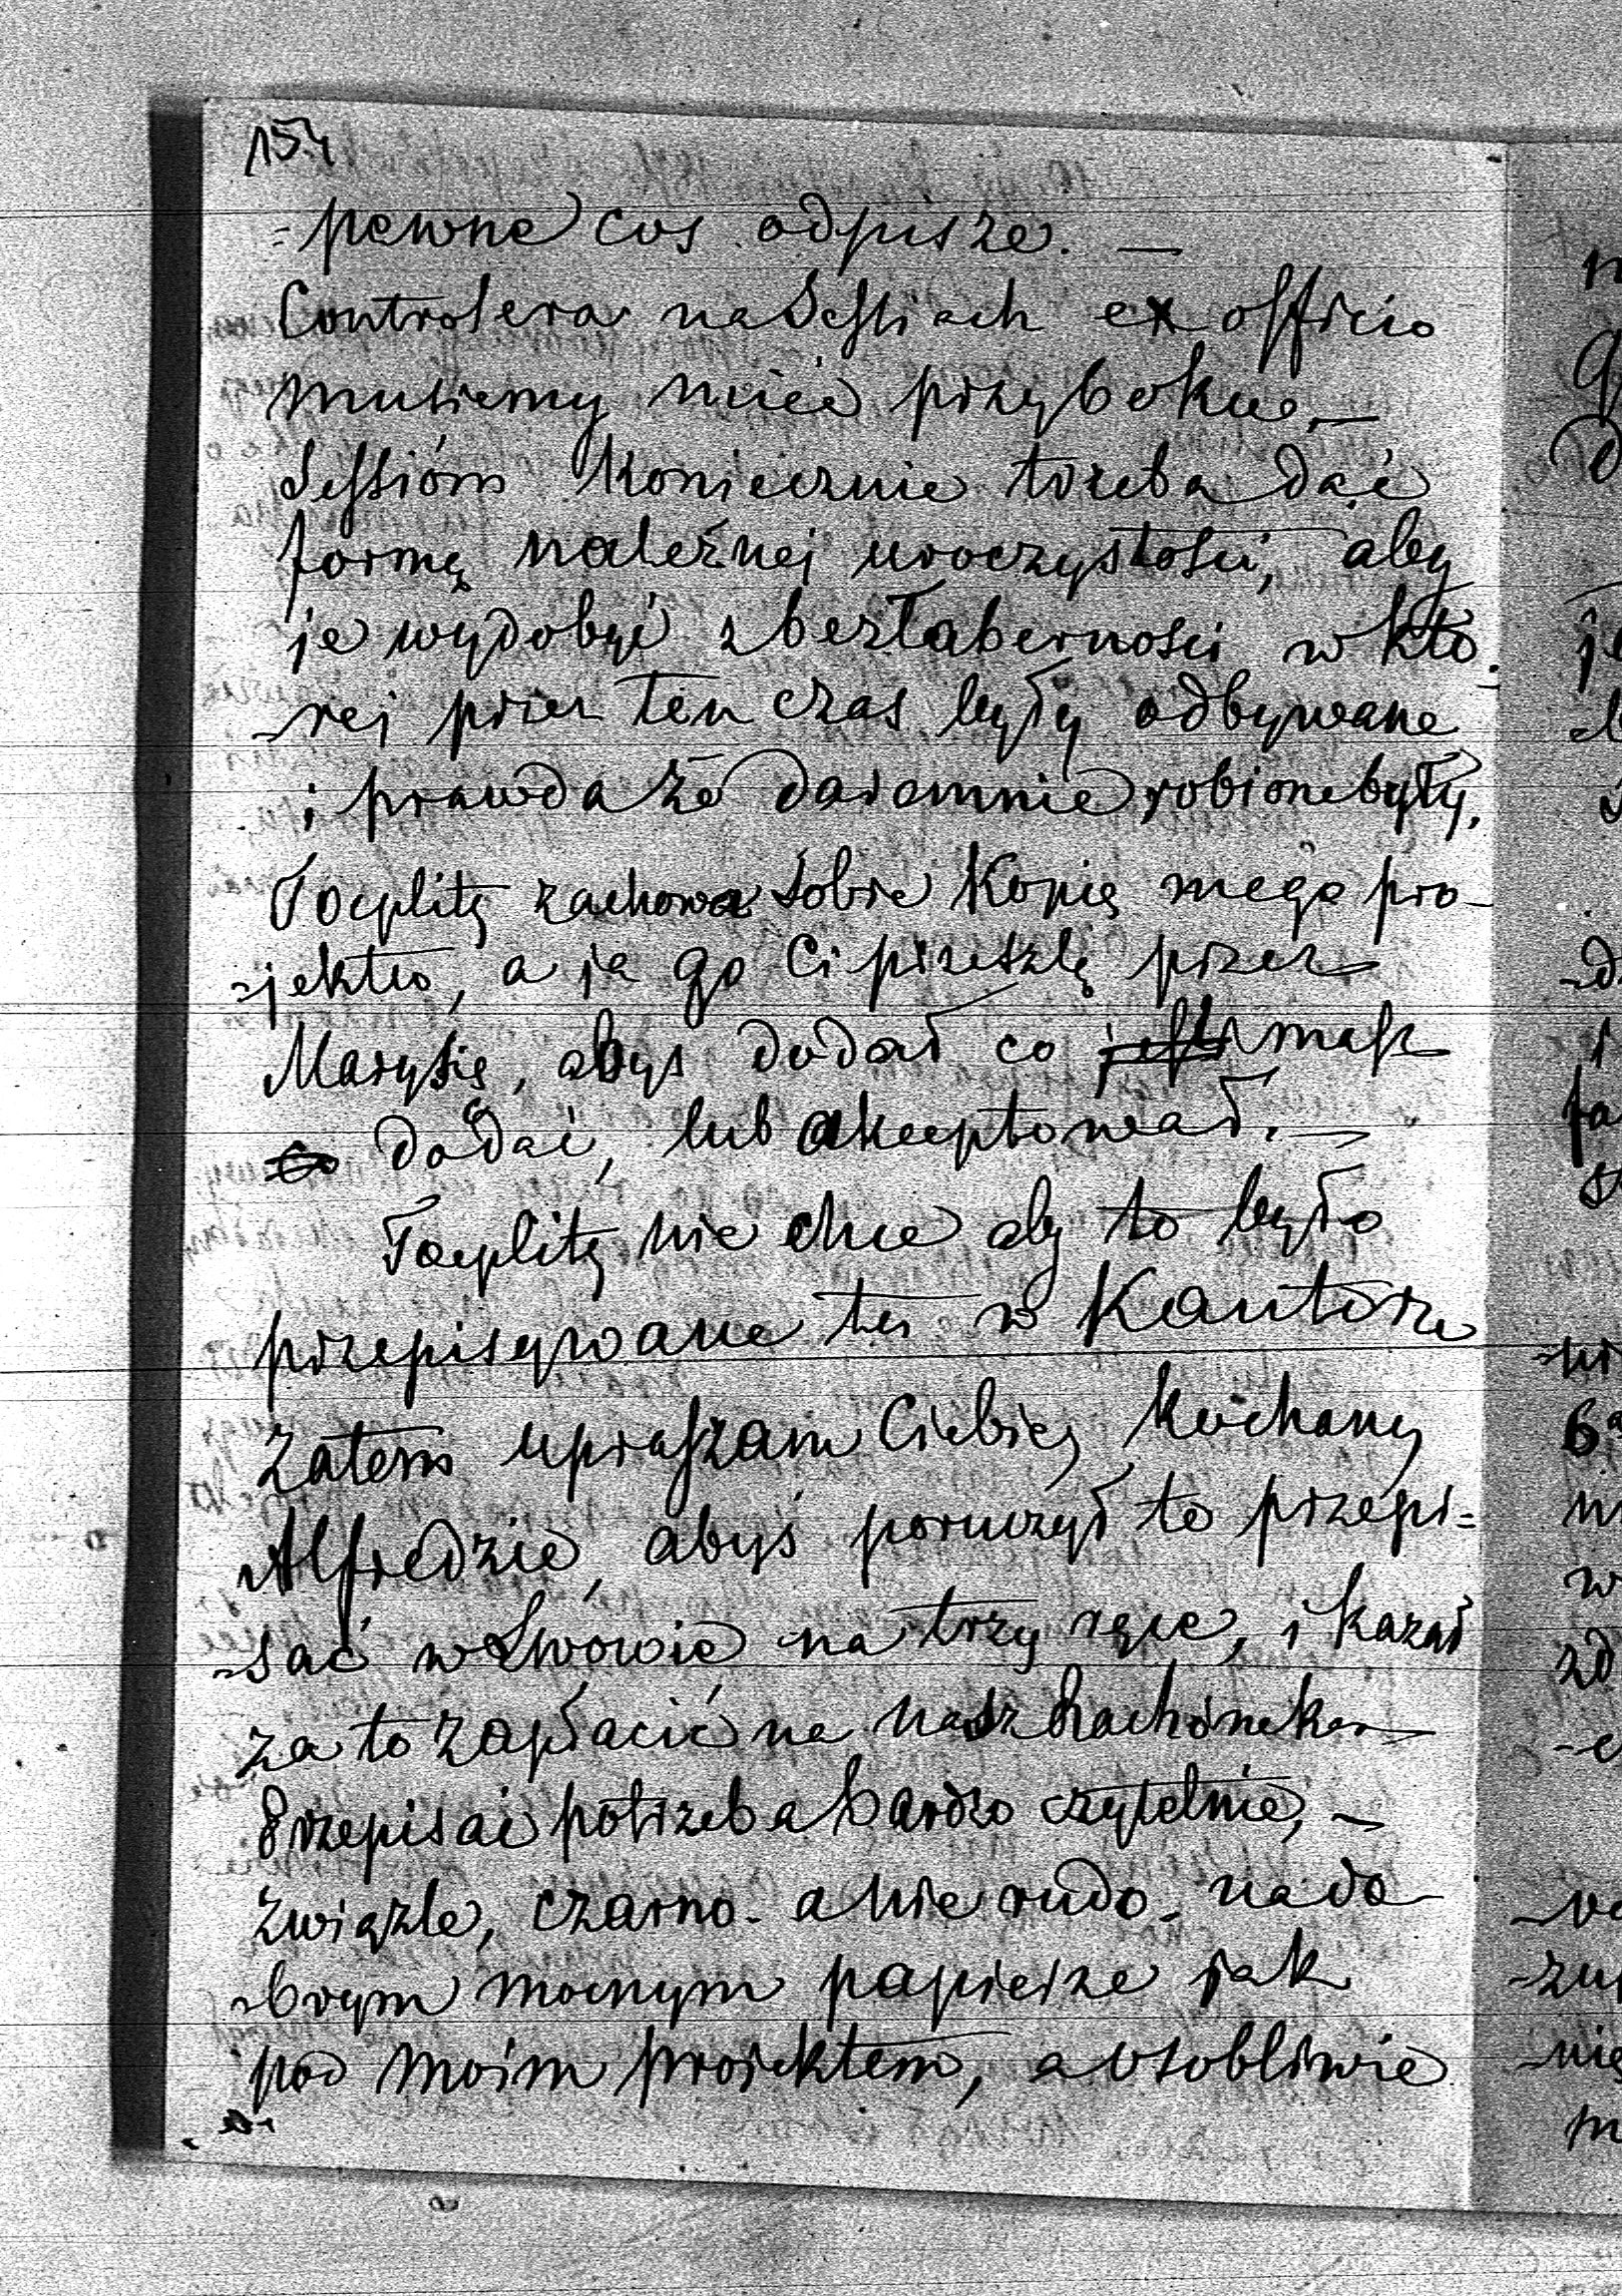 154
=pewne coś odpisze. —
Controlera na Sessiach ex officio
musiemy mieć przy boku. —
Sessióm koniecznie trzeba dać
formę należnej uroczystości, aby
je wydobyć z beztaberności w któ
-rej przez ten czas były odbywane
i prawda że daremnie robione były.
Toeplitz zachowa sobie Kopię mego pro-
-jektu, a ja go Ci przeszlę przez
Marysię, abyś dodał co masz
dodać, lub akceptował. —
Toeplitz nie chce aby to było
przepisywane tu w Kantorze
Zatem upraszam Ciebie, kochany
Alfredzie, abyś poruczył to przepi=
-sać w Lwowie na trzy ręce, i kazał
za to zapłacić na nasz Rachunek —
Przepisać potrzeba bardzo czytelnie, —
związle, czarno - a nie rudo - na do-
-brym mocnym papierze jak
pod moim projektem, a osobliwie